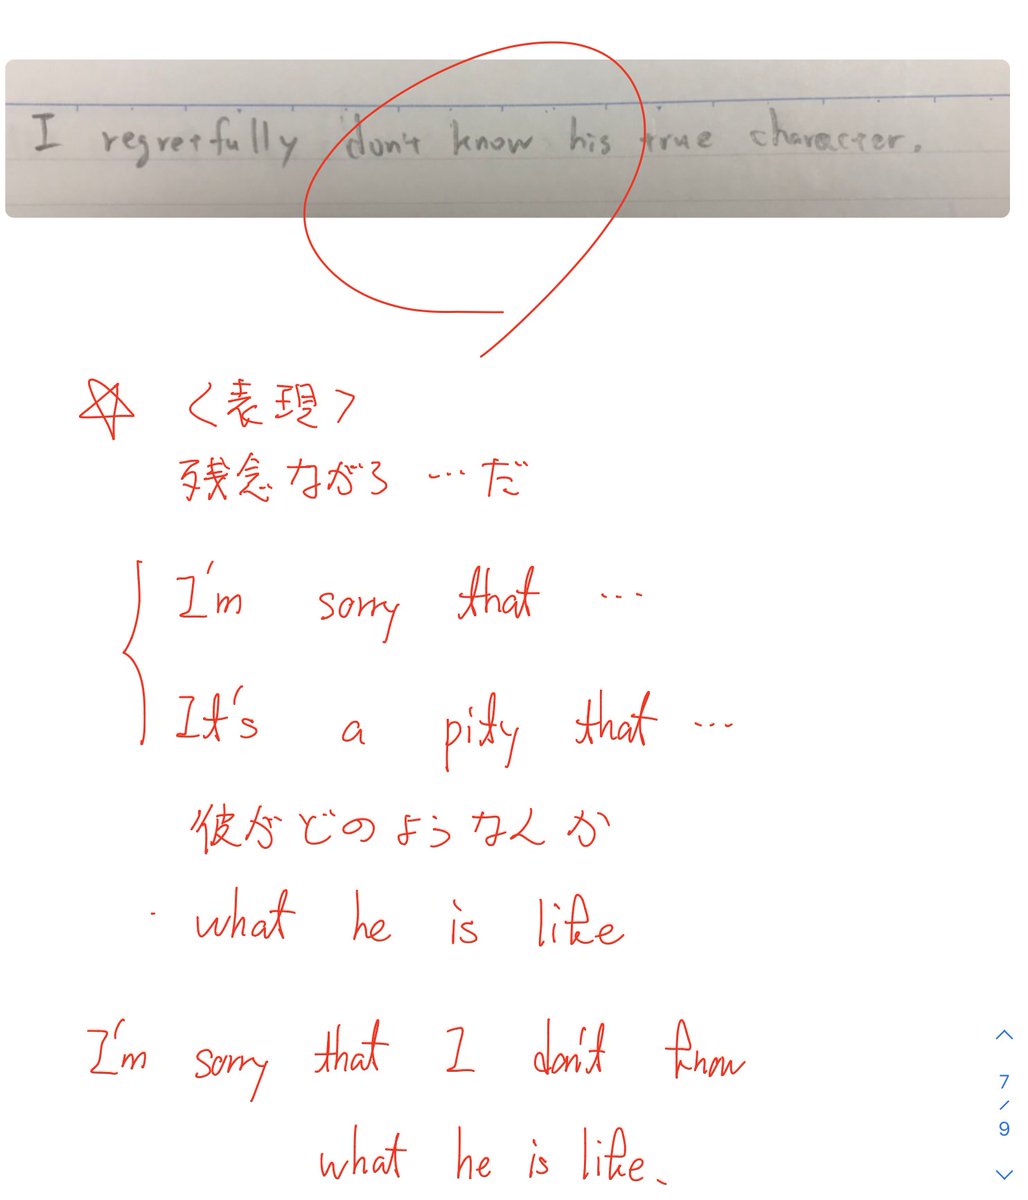 I regretfully don't know his true character.
☆ <表現>
残念ながら …だ
I'm sorry that …
It's a pity that …
彼がどのようなんか
· what he is like
I'm sorry that I don't know
what he is like.
7
/
9